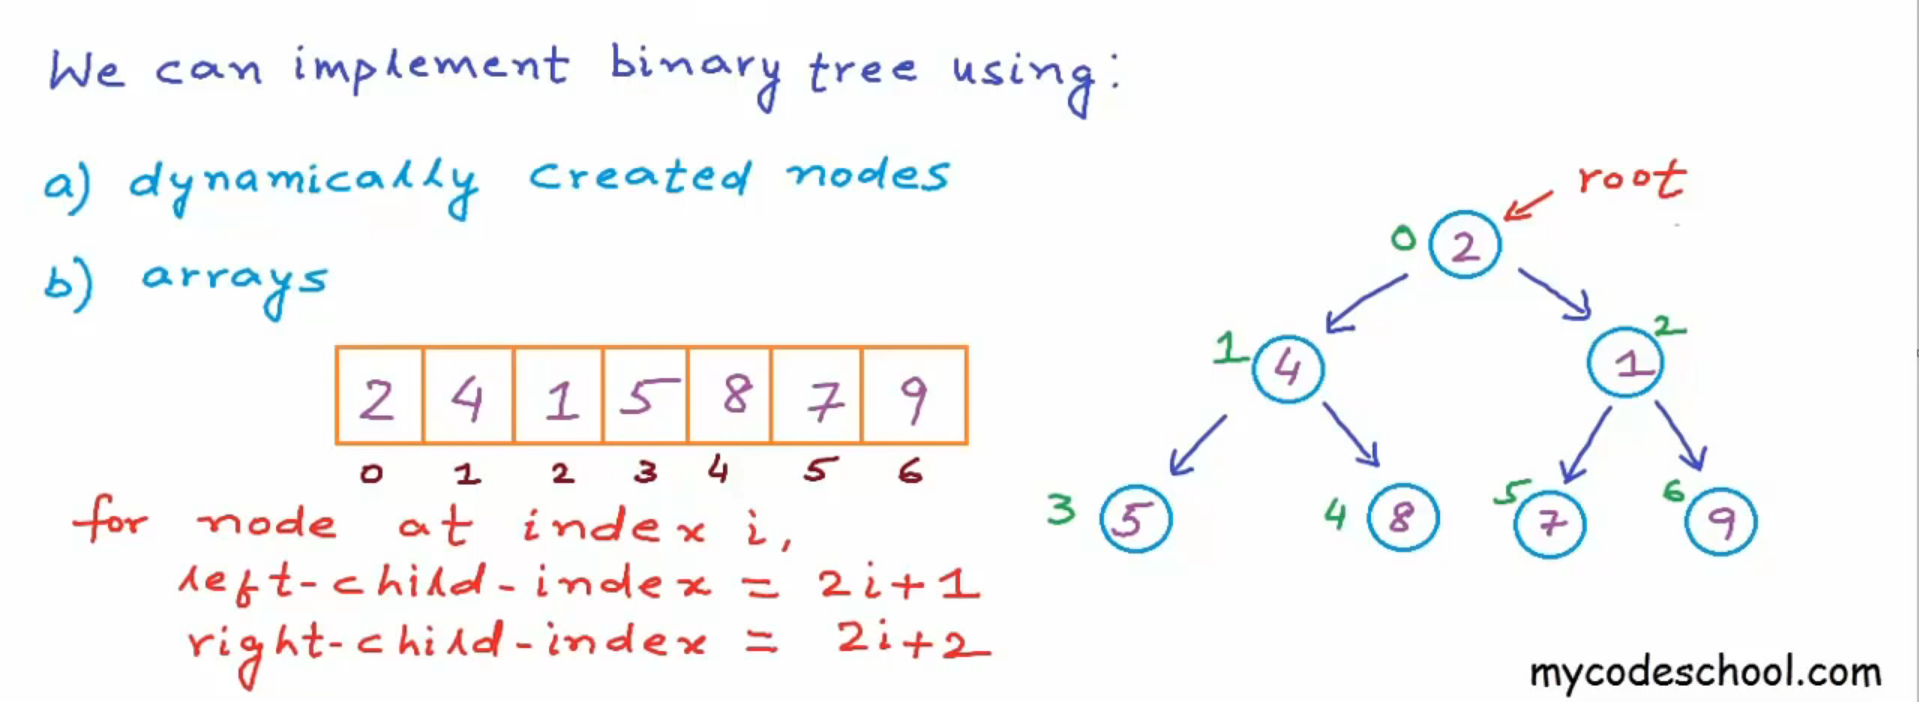 We can implement binary tree using:
a) dynamically created nodes
b) arrays
2 4 1 5 8 7 9
0 1 2 3 4 5 6
for node at index i,
left-child-index = 2i+1
right-child-index = 2i+2
root
0 2
1 4
1 2
3 5
4 8
5 7
6 9
mycodeschool.com